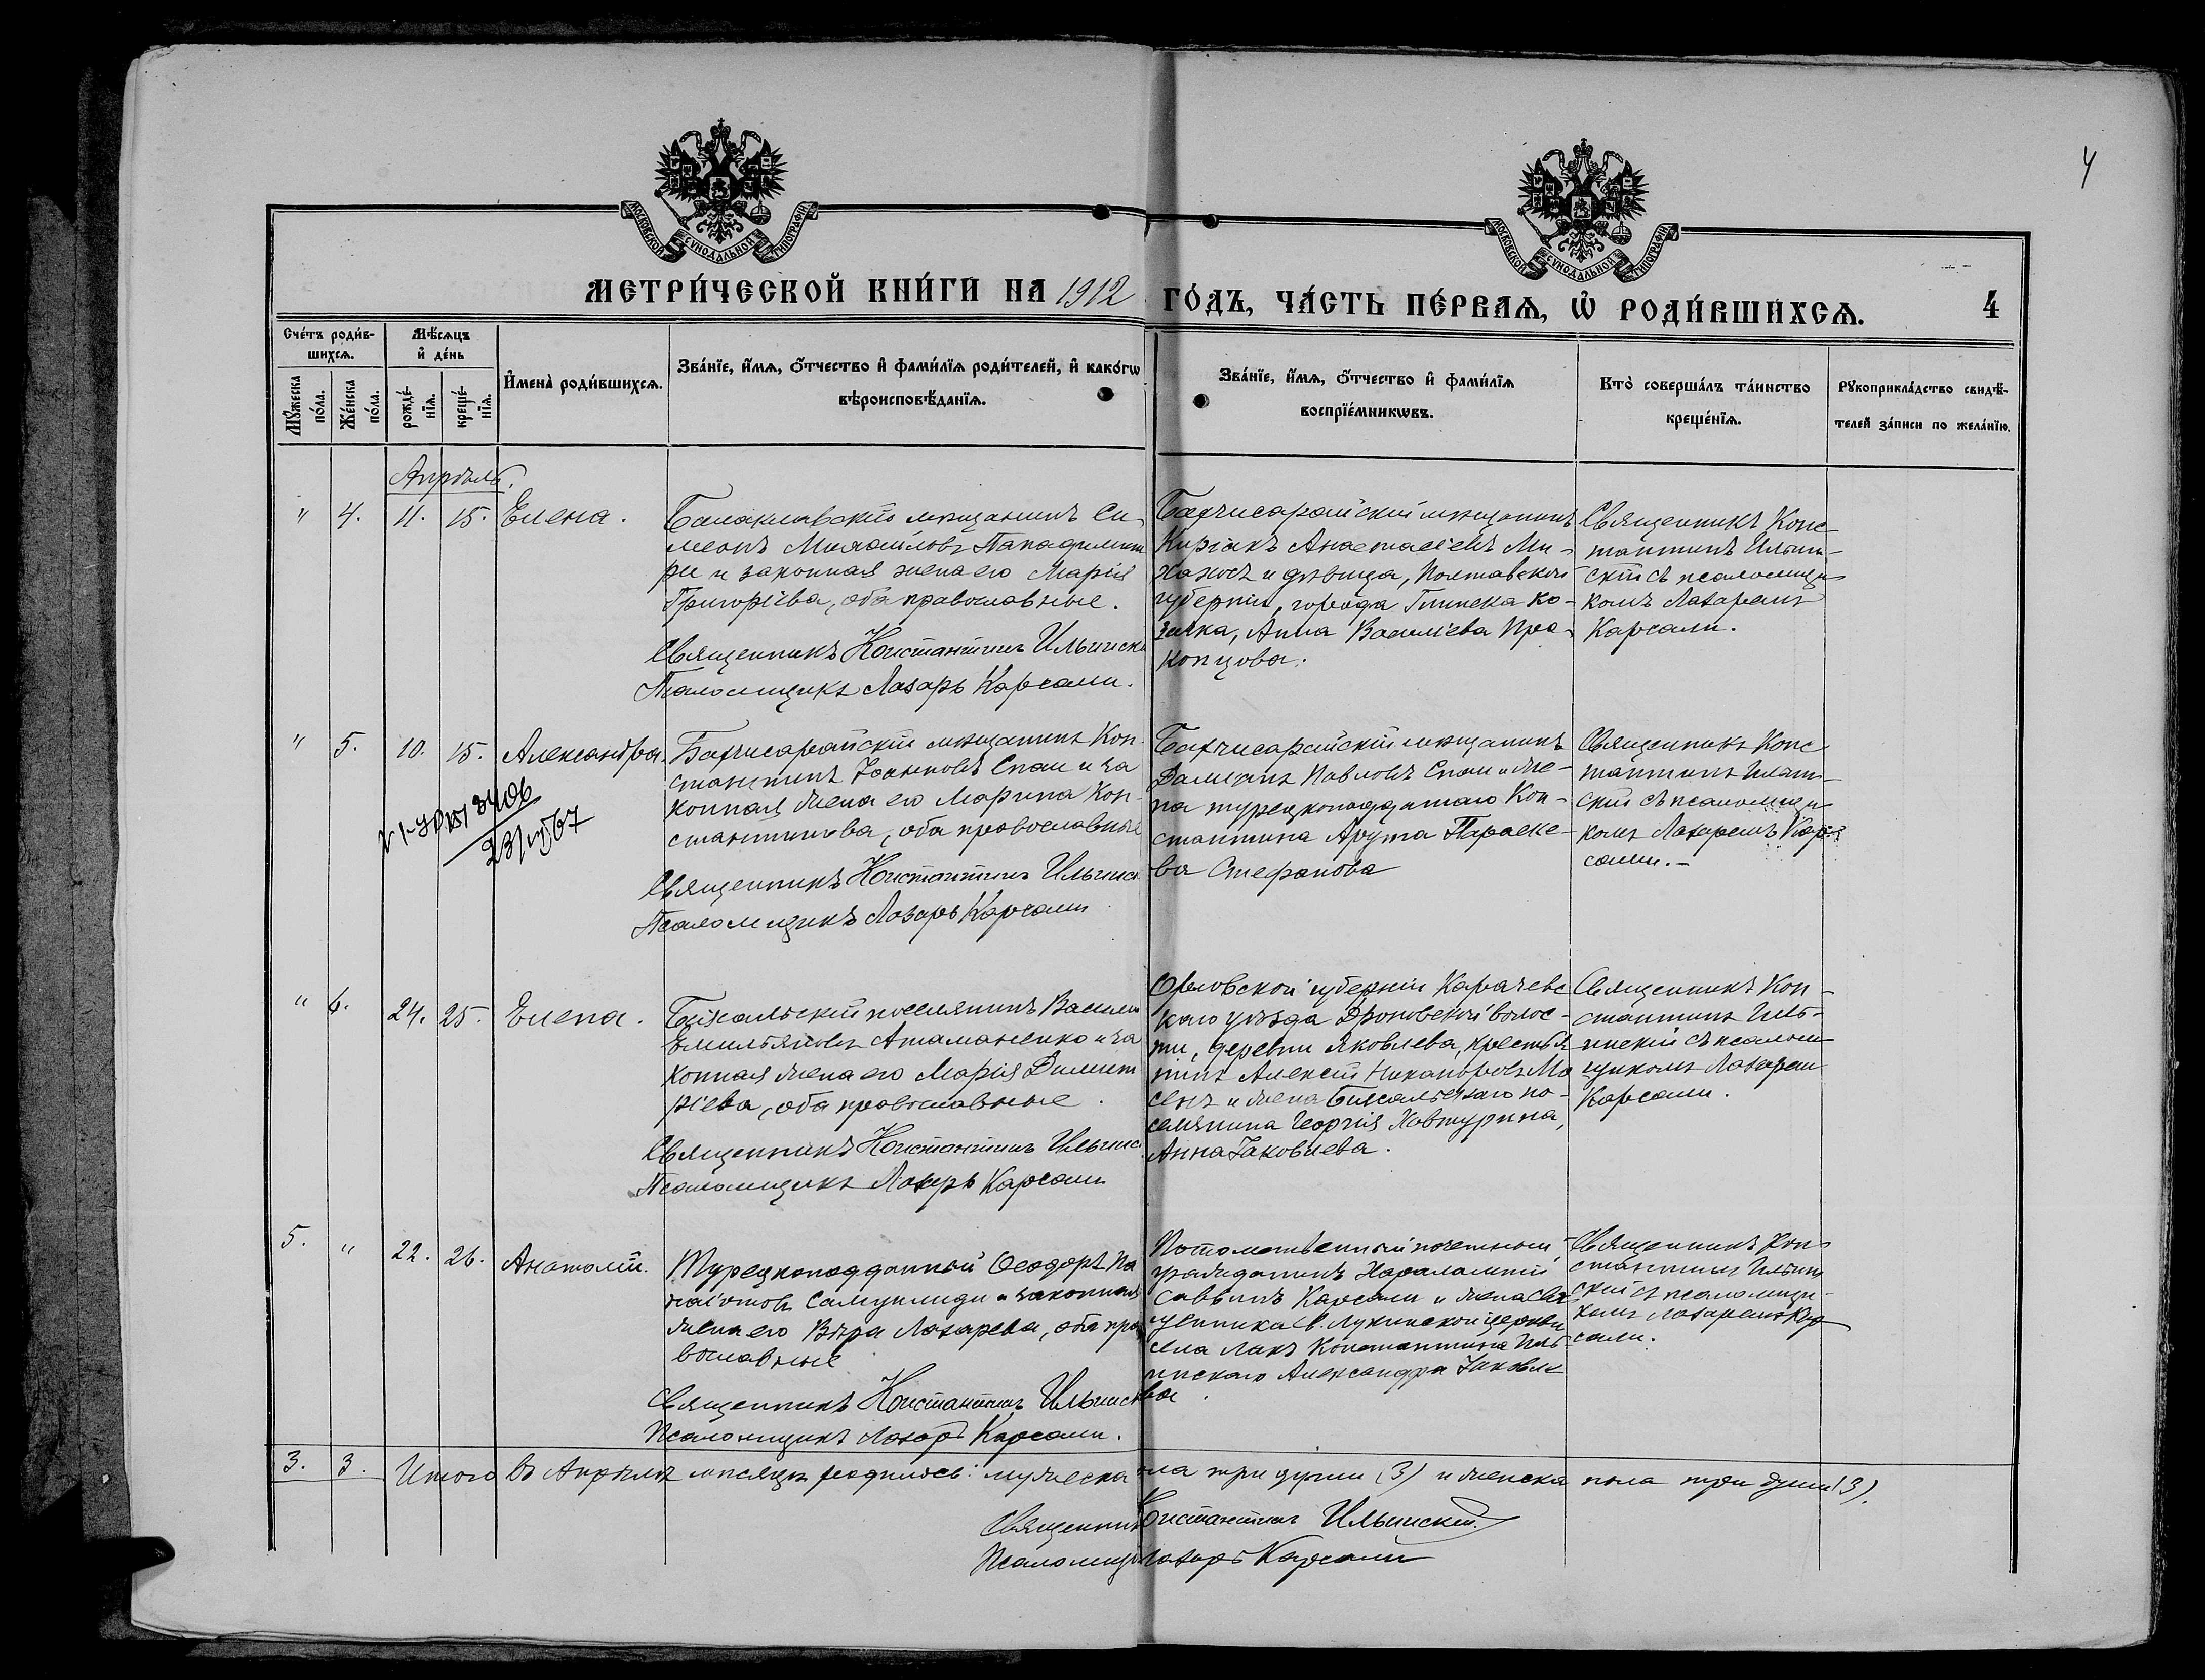 4
МОСКОВСКОЙ СѴНОДАЛЬНОЙ ТИПОГРАФІИ
МОСКОВСКОЙ СѴНОДАЛЬНОЙ ТИПОГРАФІИ
МЕТРИ́ЧЕСКОЙ КНИ́ГИ НА 1912 ГО́ДЪ, ЧА́СТЬ ПЕ́РВАѦ, Ѡ РОДИ́ВШИХСѦ. 4
Сче́тъ роди́в-
шихсѧ.
Мꙋ́жеска
по́ла.
Же́нска
по́ла.
Мѣ́сѧцъ
и҆ де́нь
рожде́-
нїѧ.
креще́-
нїѧ.
И҆мена̀ роди́вшихсѧ.
Зва́нїе, и҆́мѧ, ѻ҆́тчество и҆ фами́лїѧ роди́телей, и҆ како́гѡ
вѣроисповѣ́данїѧ.
Зва́нїе, и҆́мѧ, ѻ҆́тчество и҆ фами́лїѧ
воспрїе́мникѡвъ.
Кто̀ соверша́лъ та́инство
креще́нїѧ.
Рꙋкоприкла́дство свидѣ́-
телей за́писи по жела́нїю.
Апрѣль.
" 4. 11. 15. Елена.
Балаклавскій мѣщанинъ Си-
меонъ Михайловъ Пападимит
ри и законная жена его Марія
Григорієва, оба православные.
Священникъ Константинъ Ильинск
Псаломщикъ Лазарь Карсали.
Бахчисарайскій мѣщанинъ
Киріакъ Анастасіевъ Ми-
хахосъ и дѣвица, Полтавской
губерніи, города Глинска ко-
зачка, Анна Василіева Про-
копцова.
Священникъ Конс-
тантинъ Ильин-
скій съ псаломщи
комъ Лазаремъ
Карсали.
" 5. 10. 15. Александра.
Бахчисарайскій мѣщанинъ Кон
стантинъ Іоанновъ Спаи и за
конная жена его Марина Кон-
стантинова, оба православные
Священникъ Константинъ Ильинс
Псаломщикъ Лазарь Карсали
Бахчисарайскій мѣщанинъ
Даміанъ Павловъ Спаи и же-
на турецкоподданаго Кон-
стантина Арута Параске-
ва Стефанова
Священникъ Конс
тантинъ Ильин-
скій съ псаломщи
комъ Лазаремъ Кар-
сали.-
23/VI 67
" 6. 24. 25. Елена.
Біясальскій поселянинъ Василій
Емильяновъ Атаманенко и за
конная жена его Марія Димит
ріева, оба православные.
Священникъ Константинъ Ильинс
Псаломщикъ Лазарь Карсали
Орловской губерніи Карачевс
каго уѣзда Дроновской волос-
ти, деревни Яковлева, крестья
нинъ Алексій Никаноровъ Мо
сенъ и жена Біясальскаго по-
селянина Георгія Ховтурина,
Анна Іаковлева.
Священникъ Кон-
стантинъ Иль-
инскій съ псалом
щикомъ Лазаремъ
Карсали.
5. " 22. 26. Анатолій.
Турецкоподданный Ѳеодоръ Па
наіотовъ Самуилиди и законная
жена его Вѣра Лазарева, оба пра
вославные
Священникъ Константинъ Ильинс
Псаломщикъ Лазарь Карсали.
Потомственный почетный
гражданинъ Харалампій
Саввинъ Карсали и жена свя
щенника св. Лукинской церкви
села Лакъ Константина Иль-
инскаго Александра Іаковле
ва.
Священникъ Кон
стантинъ Ильин
скій съ псаломщи-
комъ Лазаремъ Кар
сали.
3. 3. Итого въ Апрѣлѣ мѣсяцѣ родилось: мужеска пола три души (3) и женска пола три души (3).
Священник Константинъ Ильинскій.
Псаломщи Лазарь Карсали